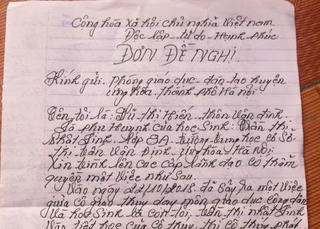 Cộng hòa xã hội chủ nghĩa việt nam
Độc lập - tự do - Hạnh phúc
ĐƠN ĐỀ NGHỊ.
Kính gửi. Phòng giáo dục đào tạo huyện
ứng hòa, thành phố Hà nội
Tên tôi là: thị Hiền, thôn Vân đình
là phụ huynh của học sinh: thị
nhất Linh. lớp 9A. trường trung học cơ sở
thị trấn Vân Đình, ứng hòa, Hà Nội.
Xin trình lên các cấp lãnh đạo có thẩm
quyền một việc như sau.
Vào ngày /2018. đã sảy ra một việc
của cô giáo thủy dạy môn giáo dục công dân
và học sinh là con tôi, thị nhất Linh
tiết học của cô thủy thì cô thủy phát